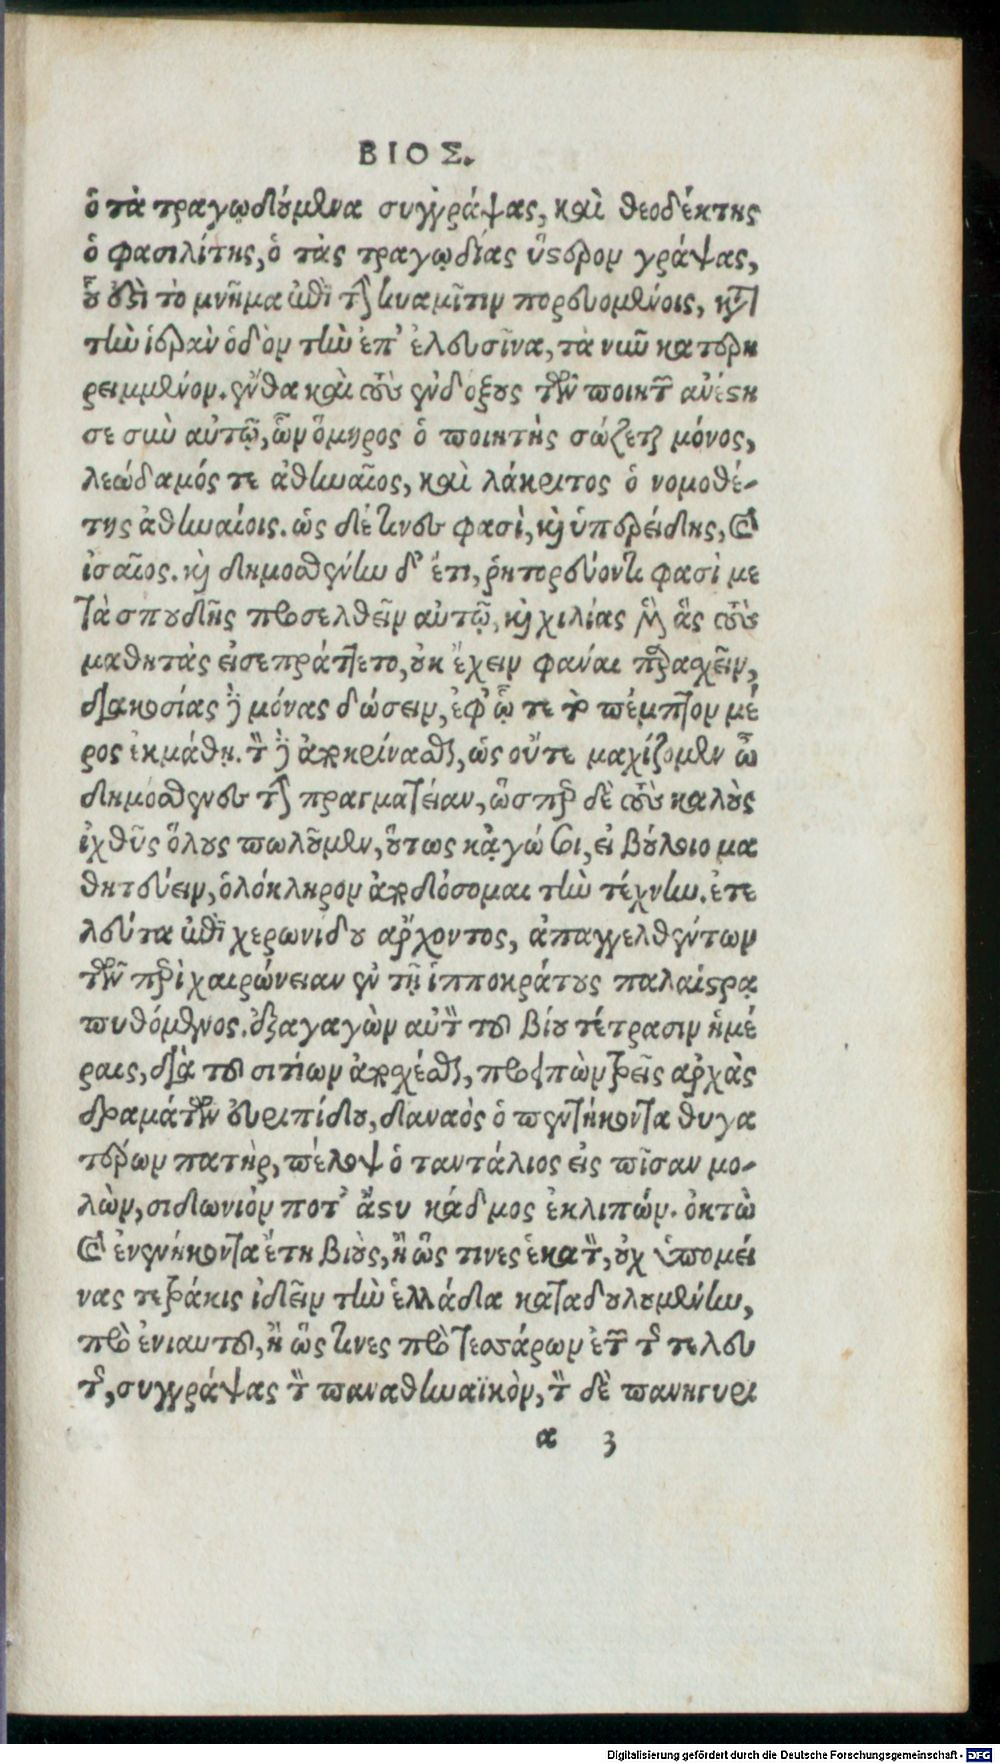 ΒΙΟΣ.
ὁ τὰ τραγῳδούμενα συγγράψας, καὶ θεοδέκτης
ὁ φασιλίτης, ὁ τὰς τραγῳδίας ὕστερον γράψας,
οὗ ἐστὶ τὸ μνῆμα ἐπὶ τὴν κυαμῖτιν πορευομένοις, κατὰ
τὴν ἱερὰν ὁδὸν τὴν ἐπ' ἐλευσῖνα, τὰ νῦν κατερη
ρειμμένον. ἔνθα καὶ τοὺς ἐνδόξους τῶν ποιητῶν ἀνέστη
σε σὺν αὐτῷ, ὧν ὅμηρος ὁ ποιητὴς σώζεται μόνος,
λεώδαμός τε ἀθηναῖος, καὶ λάκριτος ὁ νομοθέ-
της ἀθηναίοις. ὡς δέ τινες φασὶ, καὶ ὑπερείδης, καὶ
ἰσαῖος. καὶ δημοσθένην δ' ἔτι, ῥητορεύοντι φασὶ με
τὰ σπουδῆς προσελθεῖν αὐτῷ, καὶ χιλίας μὲν ἃς τοὺς
μαθητὰς εἰσεπράττετο, οὐκ ἔχειν φάναι παρασχεῖν,
διακοσίας δὲ μόνας δώσειν, ἐφ' ᾧ τε τὸ πέμπτον μέ
ρος ἐκμάθῃ. τὸν δὲ ἀποκρίνασθαι, ὡς οὔτε μαχίζομεν ὦ
δημόσθενες τὴν πραγματείαν, ὥσπερ δὲ τοὺς καλοὺς
ἰχθῦς ὅλους πωλοῦμεν, οὕτως κᾀγώ σοι, εἰ βούλοιο μα
θητεύειν, ὁλόκληρον ἀποδόσομαι τὴν τέχνην. ἐτε
λεύτα ἐπὶ χερωνίδου ἄρχοντος, ἀπαγγελθέντων
τῶν περὶ χαιρώνειαν ἐν τῇ ἱπποκράτους παλαίστρᾳ
πυθόμενος. ἐξαγαγὼν αὑτὸν τοῦ βίου τέτρασιν ἡμέ
ραις, διὰ τοῦ σιτίων ἀποσχέσθαι, προειπὼν τρεῖς ἀρχὰς
δραμάτων εὐριπίδου, δαναὸς ὁ πεντήκοντα θυγα
τέρων πατὴρ, πέλοψ ὁ ταντάλιος εἰς πῖσαν μο-
λὼν, σιδώνιόν ποτ' ἄστυ κάδμος ἐκλιπών. ὀκτὼ
καὶ ἐνενήκοντα ἔτη βιοὺς, ἢ ὥς τινες ἑκατὸν, οὐχ ὑπομεί
νας τετράκις ἰδεῖν τὴν ἑλλάδα καταδουλουμένην,
πρὸ ἐνιαυτοῦ, ἢ ὥς τινες πρὸ τεσσάρων ἐτῶν τῆς τελευ
τῆς, συγγράψας τὸν παναθηναϊκὸν, τὸν δὲ πανηγυρι
α 3
Digitalisierung gefördert durch die Deutsche Forschungsgemeinschaft - DFG